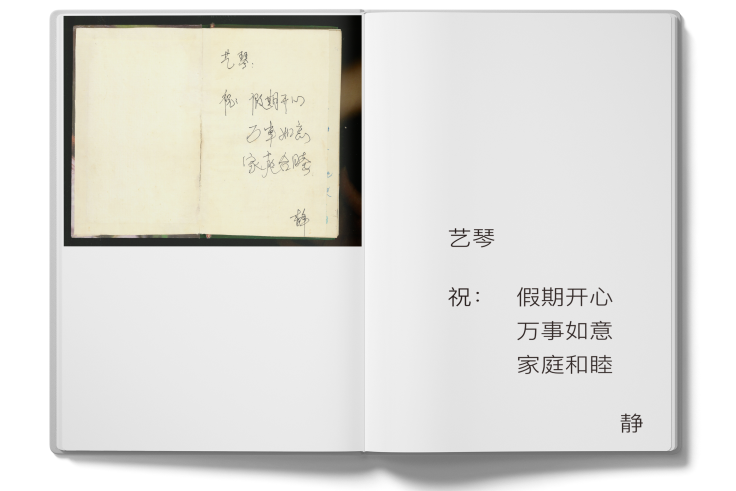 艺琴.
祝: 假期开心
万事如意
家庭合睦
静
艺琴
祝： 假期开心
万事如意
家庭和睦
静